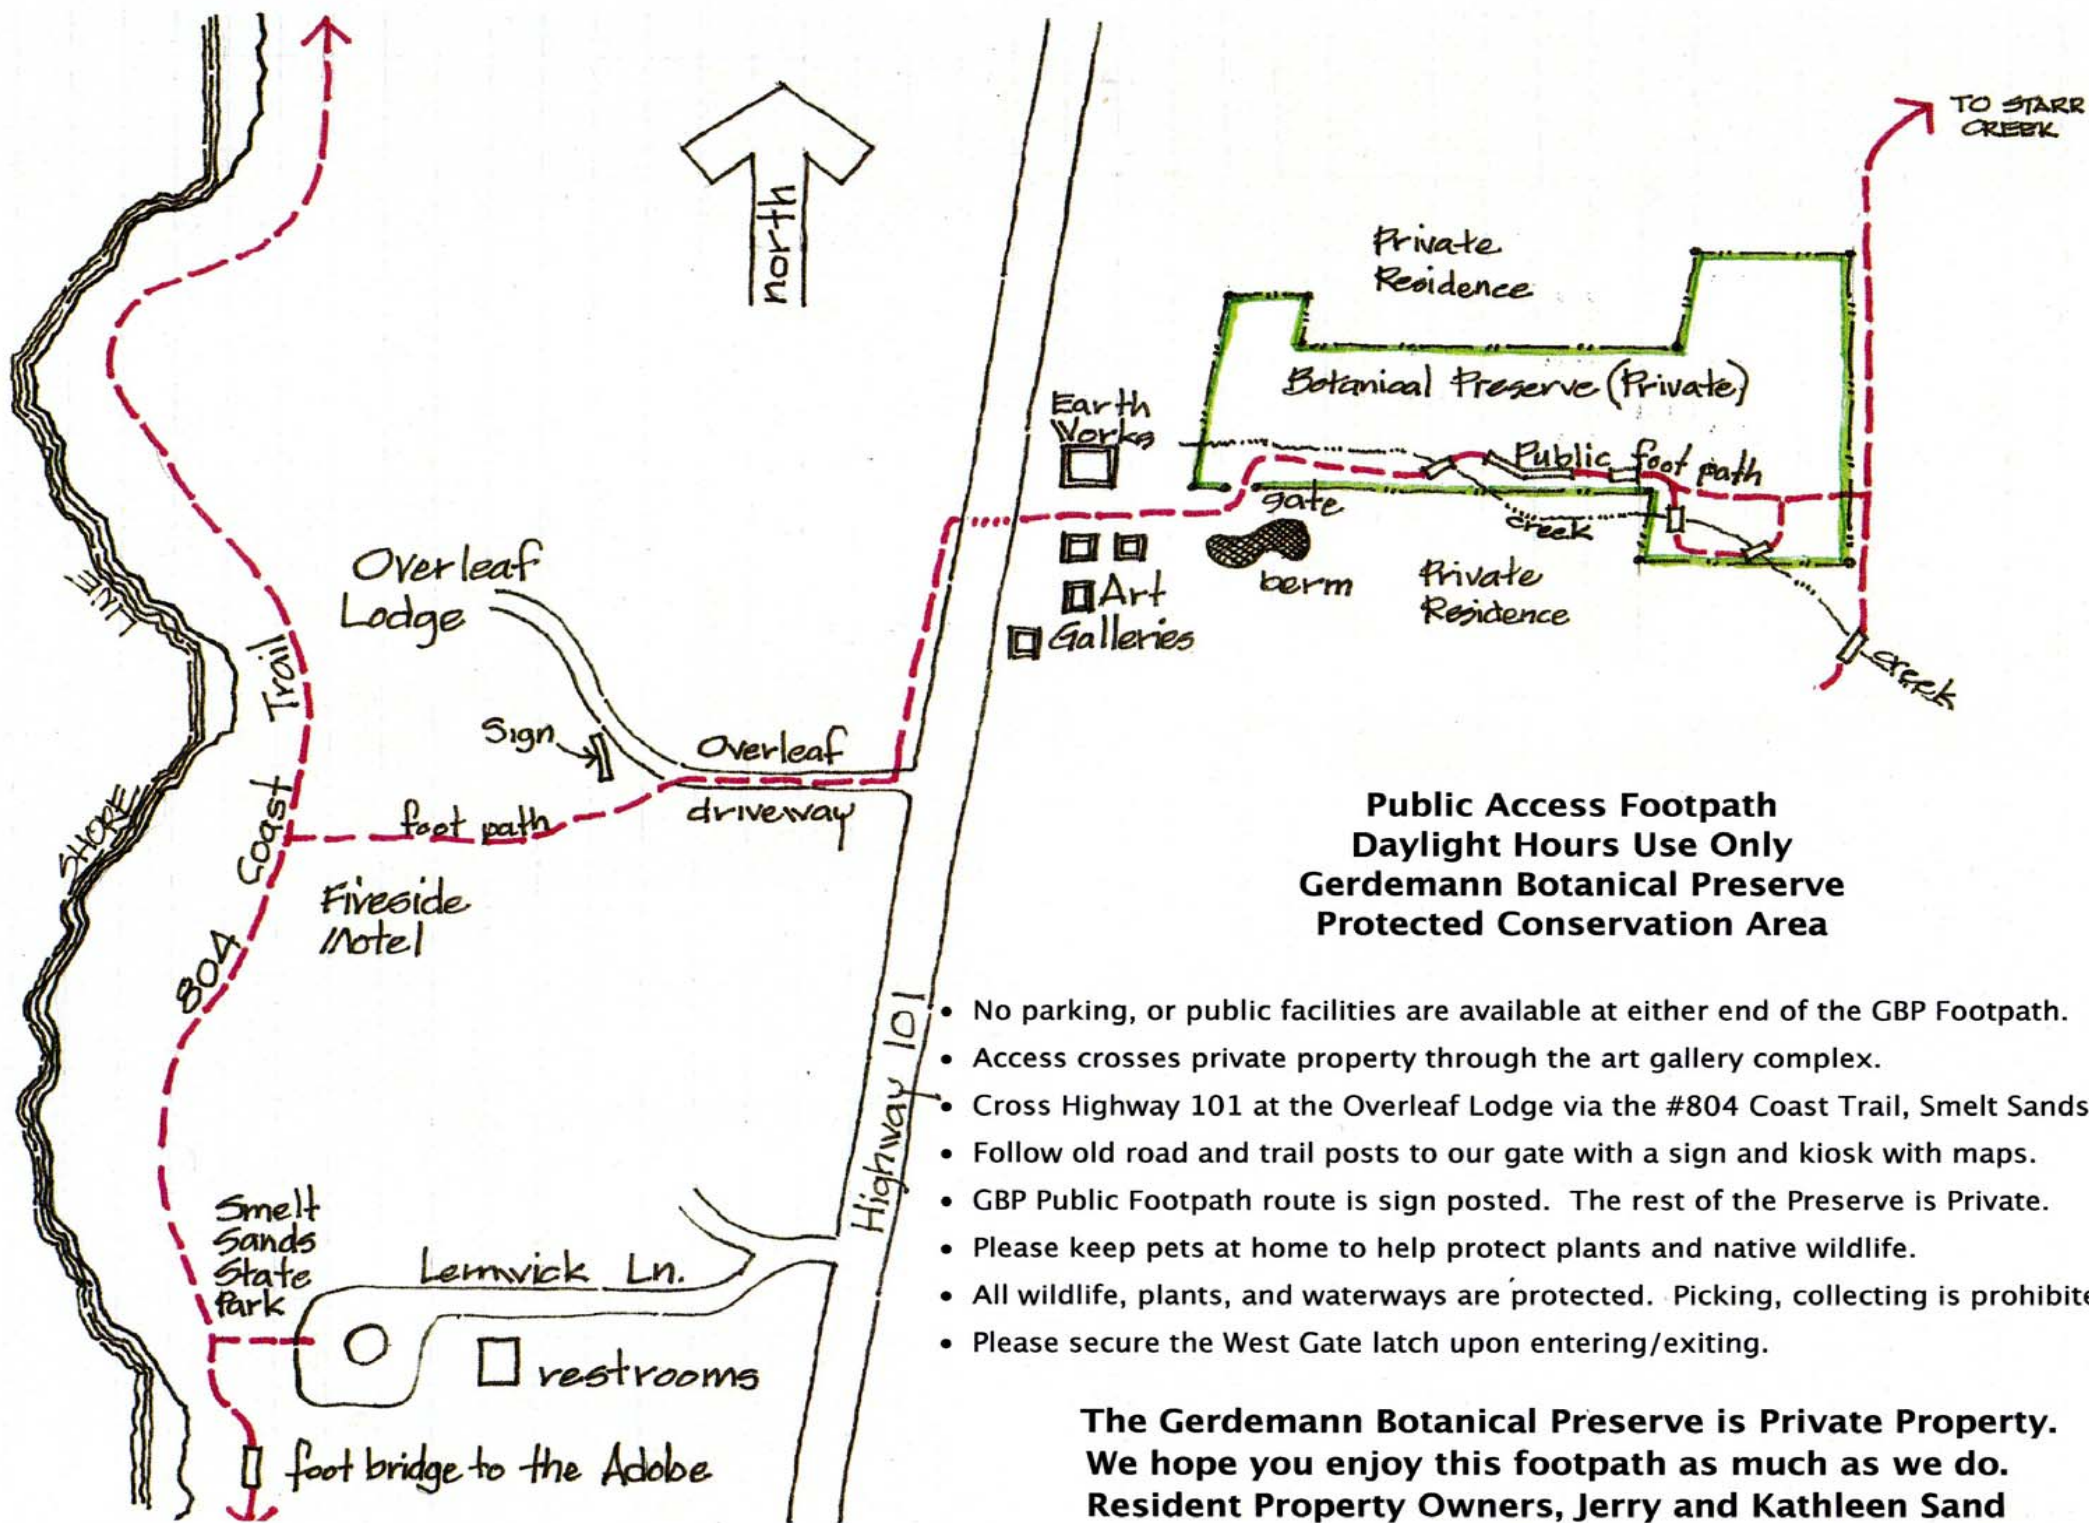 TO STARR
CREEK
north
Private
Residence
Botanical Preserve (Private)
Earth
Works
Public foot path
gate
creek
berm
Private
Residence
creek
Art
Galleries
Overleaf
Lodge
Sign
Overleaf
driveway
foot path
SHORE LINE
804 Coast Trail
Fireside
Motel
Highway 101
Smelt
Sands
State
Park
Lemwick Ln.
restrooms
foot bridge to the Adobe
Public Access Footpath
Daylight Hours Use Only
Gerdemann Botanical Preserve
Protected Conservation Area
• No parking, or public facilities are available at either end of the GBP Footpath.
• Access crosses private property through the art gallery complex.
• Cross Highway 101 at the Overleaf Lodge via the #804 Coast Trail, Smelt Sands
• Follow old road and trail posts to our gate with a sign and kiosk with maps.
• GBP Public Footpath route is sign posted. The rest of the Preserve is Private.
• Please keep pets at home to help protect plants and native wildlife.
• All wildlife, plants, and waterways are protected. Picking, collecting is prohibite
• Please secure the West Gate latch upon entering/exiting.
The Gerdemann Botanical Preserve is Private Property.
We hope you enjoy this footpath as much as we do.
Resident Property Owners, Jerry and Kathleen Sand